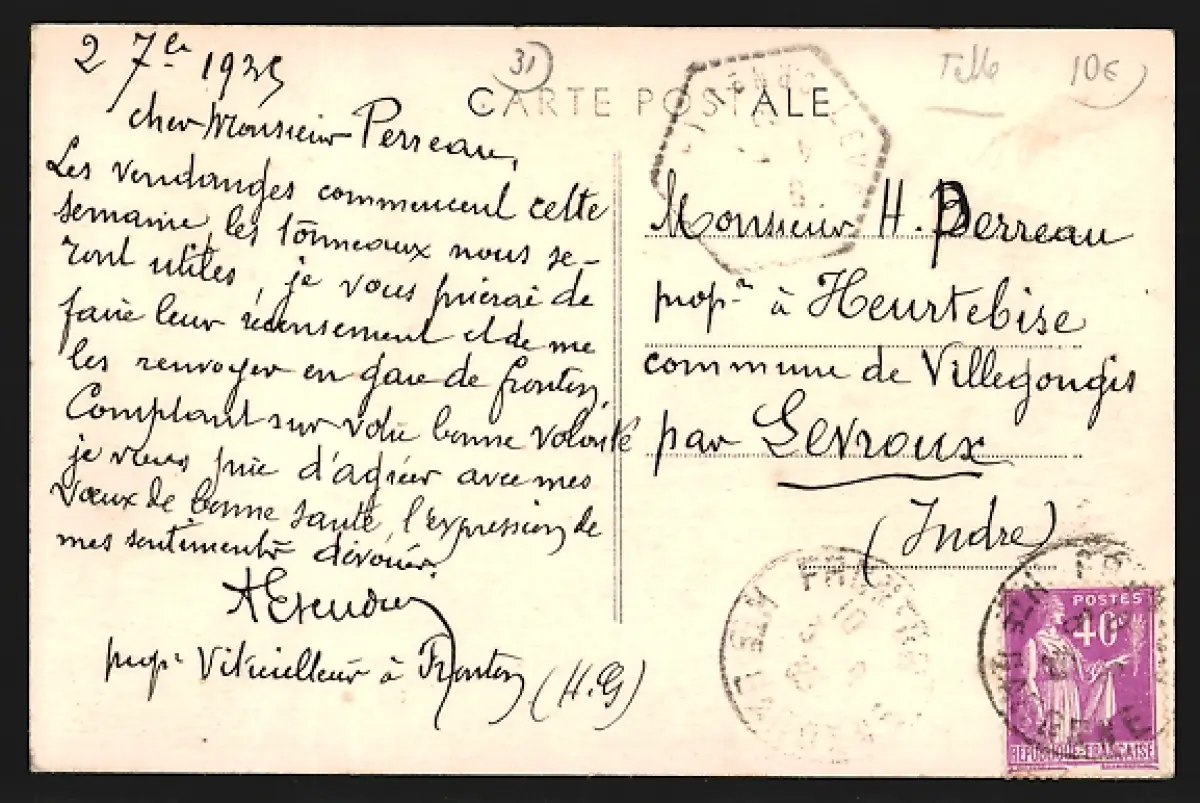 2 7bre 1935
31
Cher Monsieur Perreau,
Les vendanges commencent cette
semaine, les tonneaux nous se-
ront utiles, je vous prierai de
faire leur recensement et de me
les renvoyer en gare de Fronton.
Comptant sur votre bonne volonté
je vous prie d'agréer avec mes
vœux de bonne santé, l'expression de
mes sentiments dévoués.
propre Viticulteur à Fronton (H.G)
CARTE POSTALE
10€
Monsieur H. Perreau
propre à Heurtebise
commune de Villegongis
par Levroux
(Indre)
FRONTON
HTE
POSTES
40c
REPUBLIQUE FRANÇAISE